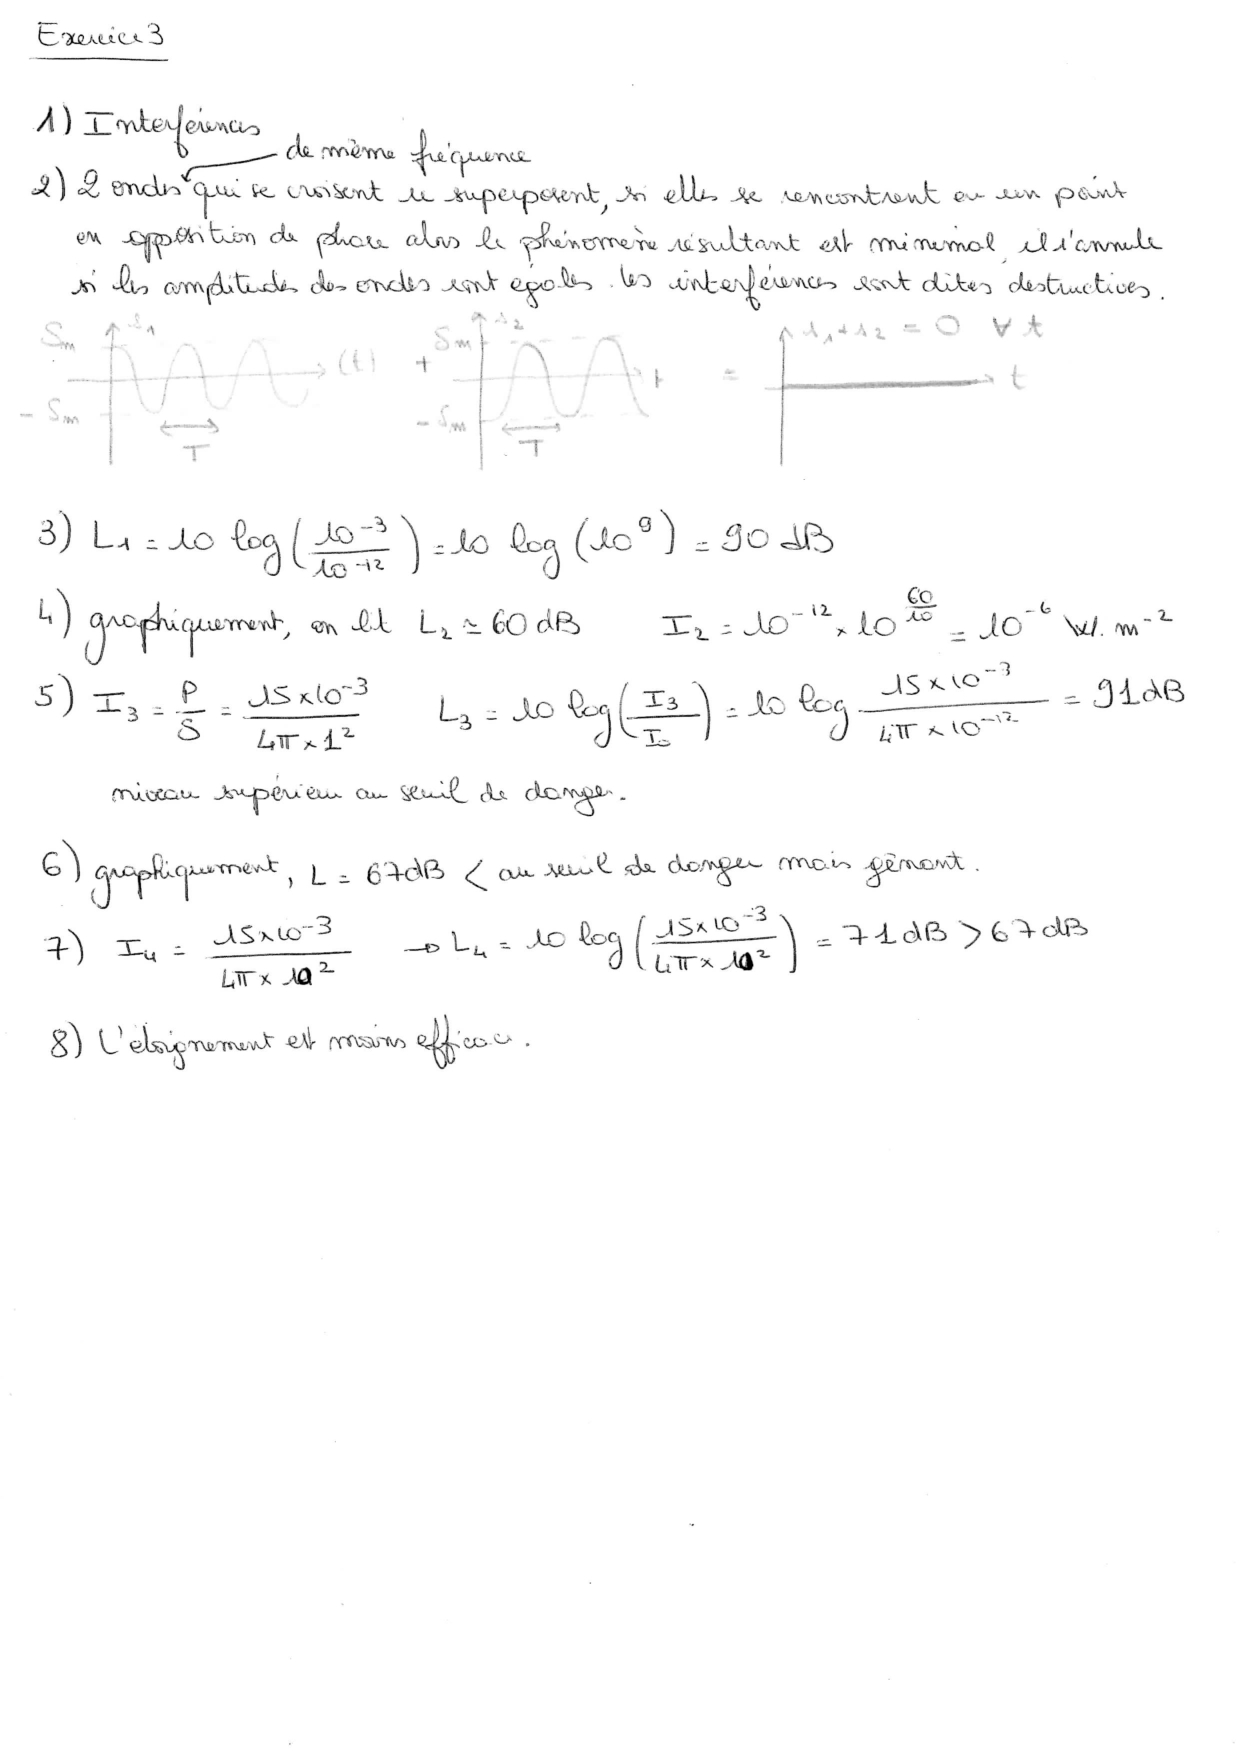 Exercice 3
1) Interférences
de même fréquence
2) 2 ondes qui se croisent se superposent, si elles se rencontrent en un point
en opposition de phase alors le phénomène résultant est minimal, il s'annule
si les amplitudes des ondes sont égales. les interférences sont dites destructives.
Sm s1 (t) - Sm T
+ Sm s2 t - Sm T
= s1 + s2 = 0 ∀ t t
3) L1 = 10 log(10^-3 / 10^-12) = 10 log (10^9) = 90 dB
4) graphiquement, on lit L2 ≃ 60 dB I2 = 10^-12 × 10^(60/10) = 10^-6 W.m^-2
5) I3 = P/S = 15×10^-3 / 4π×1^2 L3 = 10 log(I3/I0) = 10 log 15×10^-3 / 4π×10^-12 = 91 dB
niveau supérieur au seuil de danger.
6) graphiquement, L = 67dB < au seuil de danger mais gênant.
7) I4 = 15×10^-3 / 4π×10^2 → L4 = 10 log(15×10^-3 / 4π×10^2) = 71 dB > 67 dB
8) L'éloignement est moins efficace.